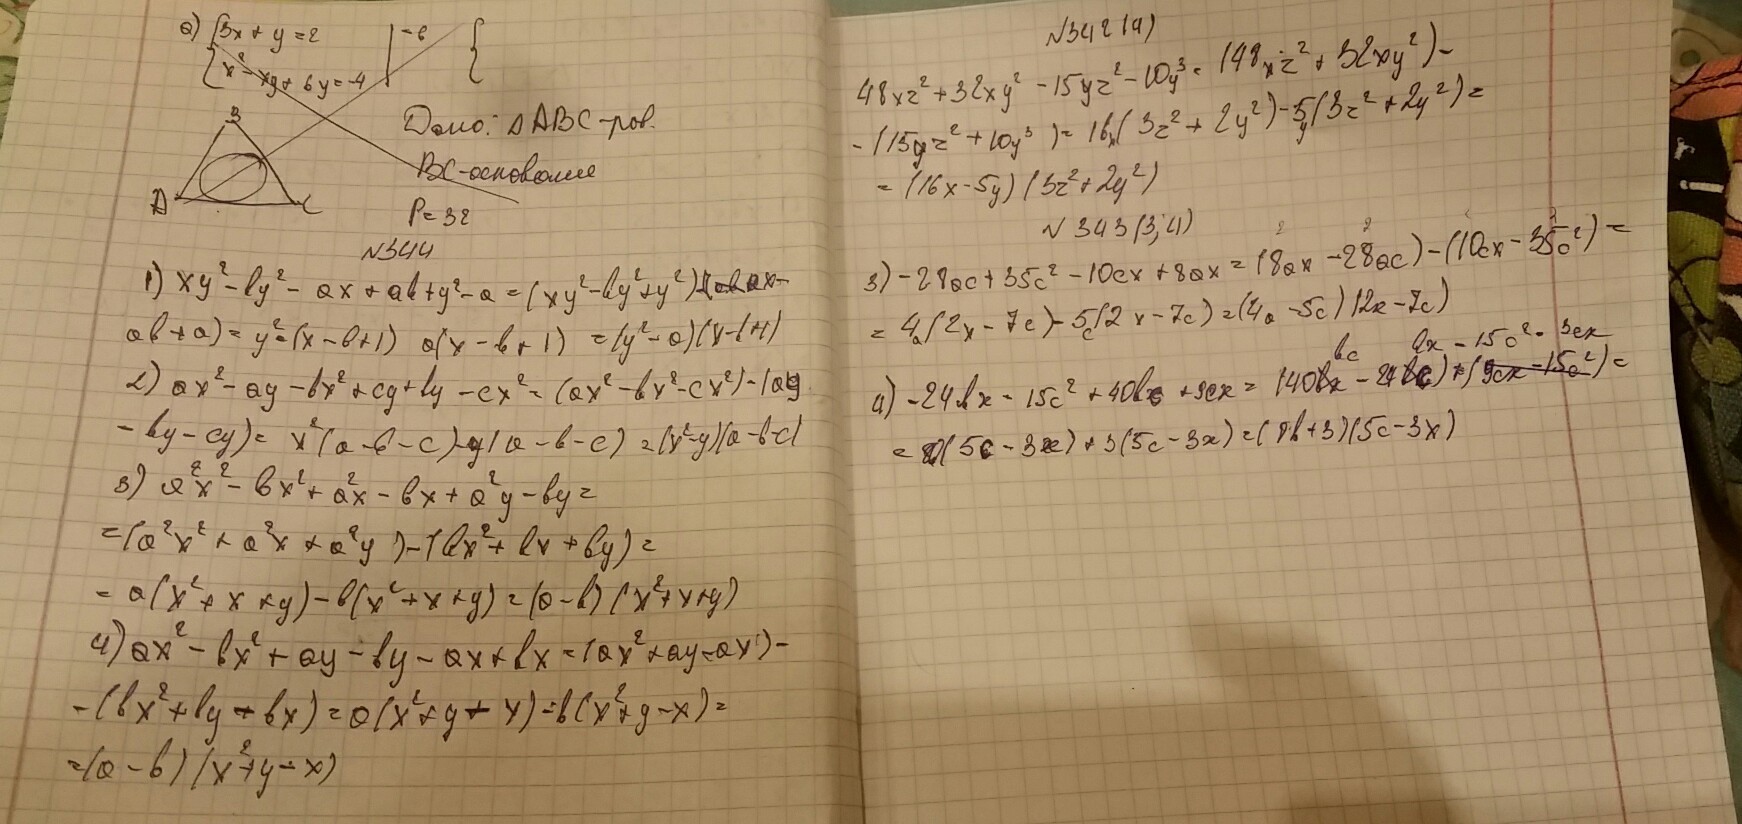 a) {3x + y = 2 | -6 {
{x² - xy + 6y = -4
B
A C
Дано: △ABC-рав.
BC-основание
P = 32
N344
1) xy² - by² - ax + ab + y² - a = (xy² - by² + y²) - (ax -
ab + a) = y² (x - b + 1) a(x - b + 1) = (y² - a)(x - b + 1)
2) ax² - ay - bx² + cy + by - cx² = (ax² - bx² - cx²) - (ay
- by - cy) = x²(a - b - c) - y(a - b - c) = (x² - y)(a - b - c)
3) a²x² - bx² + a²x - bx + a²y - by =
= (a²x² + a²x + a²y) - (bx² + bx + by) =
= a(x² + x + y) - b(x² + x + y) = (a - b)(x² + x + y)
4) ax² - bx² + ay - by - ax + bx = (ax² + ay - ax) -
- (bx² + by - bx) = a(x² + y - x) - b(x² + y - x) =
= (a - b)(x² + y - x)
N342(4)
48xz² + 32xy² - 15yz² - 10y³ = (48xz² + 32xy²) -
- (15yz² + 10y³) = 16x(3z² + 2y²) - 5y(3z² + 2y²) =
= (16x - 5y)(3z² + 2y²)
N343(3;4)
3) -28ac + 35c² - 10cx + 8ax = (8ax - 28ac) - (10cx - 35c²) =
= 4a(2x - 7c) - 5c(2x - 7c) = (4a - 5c)(2x - 7c)
bc bx - 15c² 9cx
4) -24bx - 15c² + 40bc + 9cx = (40bx - 24bc) + (9cx - 15c²) =
= (5c - 3x) + 3(5c - 3x) = (8b + 3)(5c - 3x)